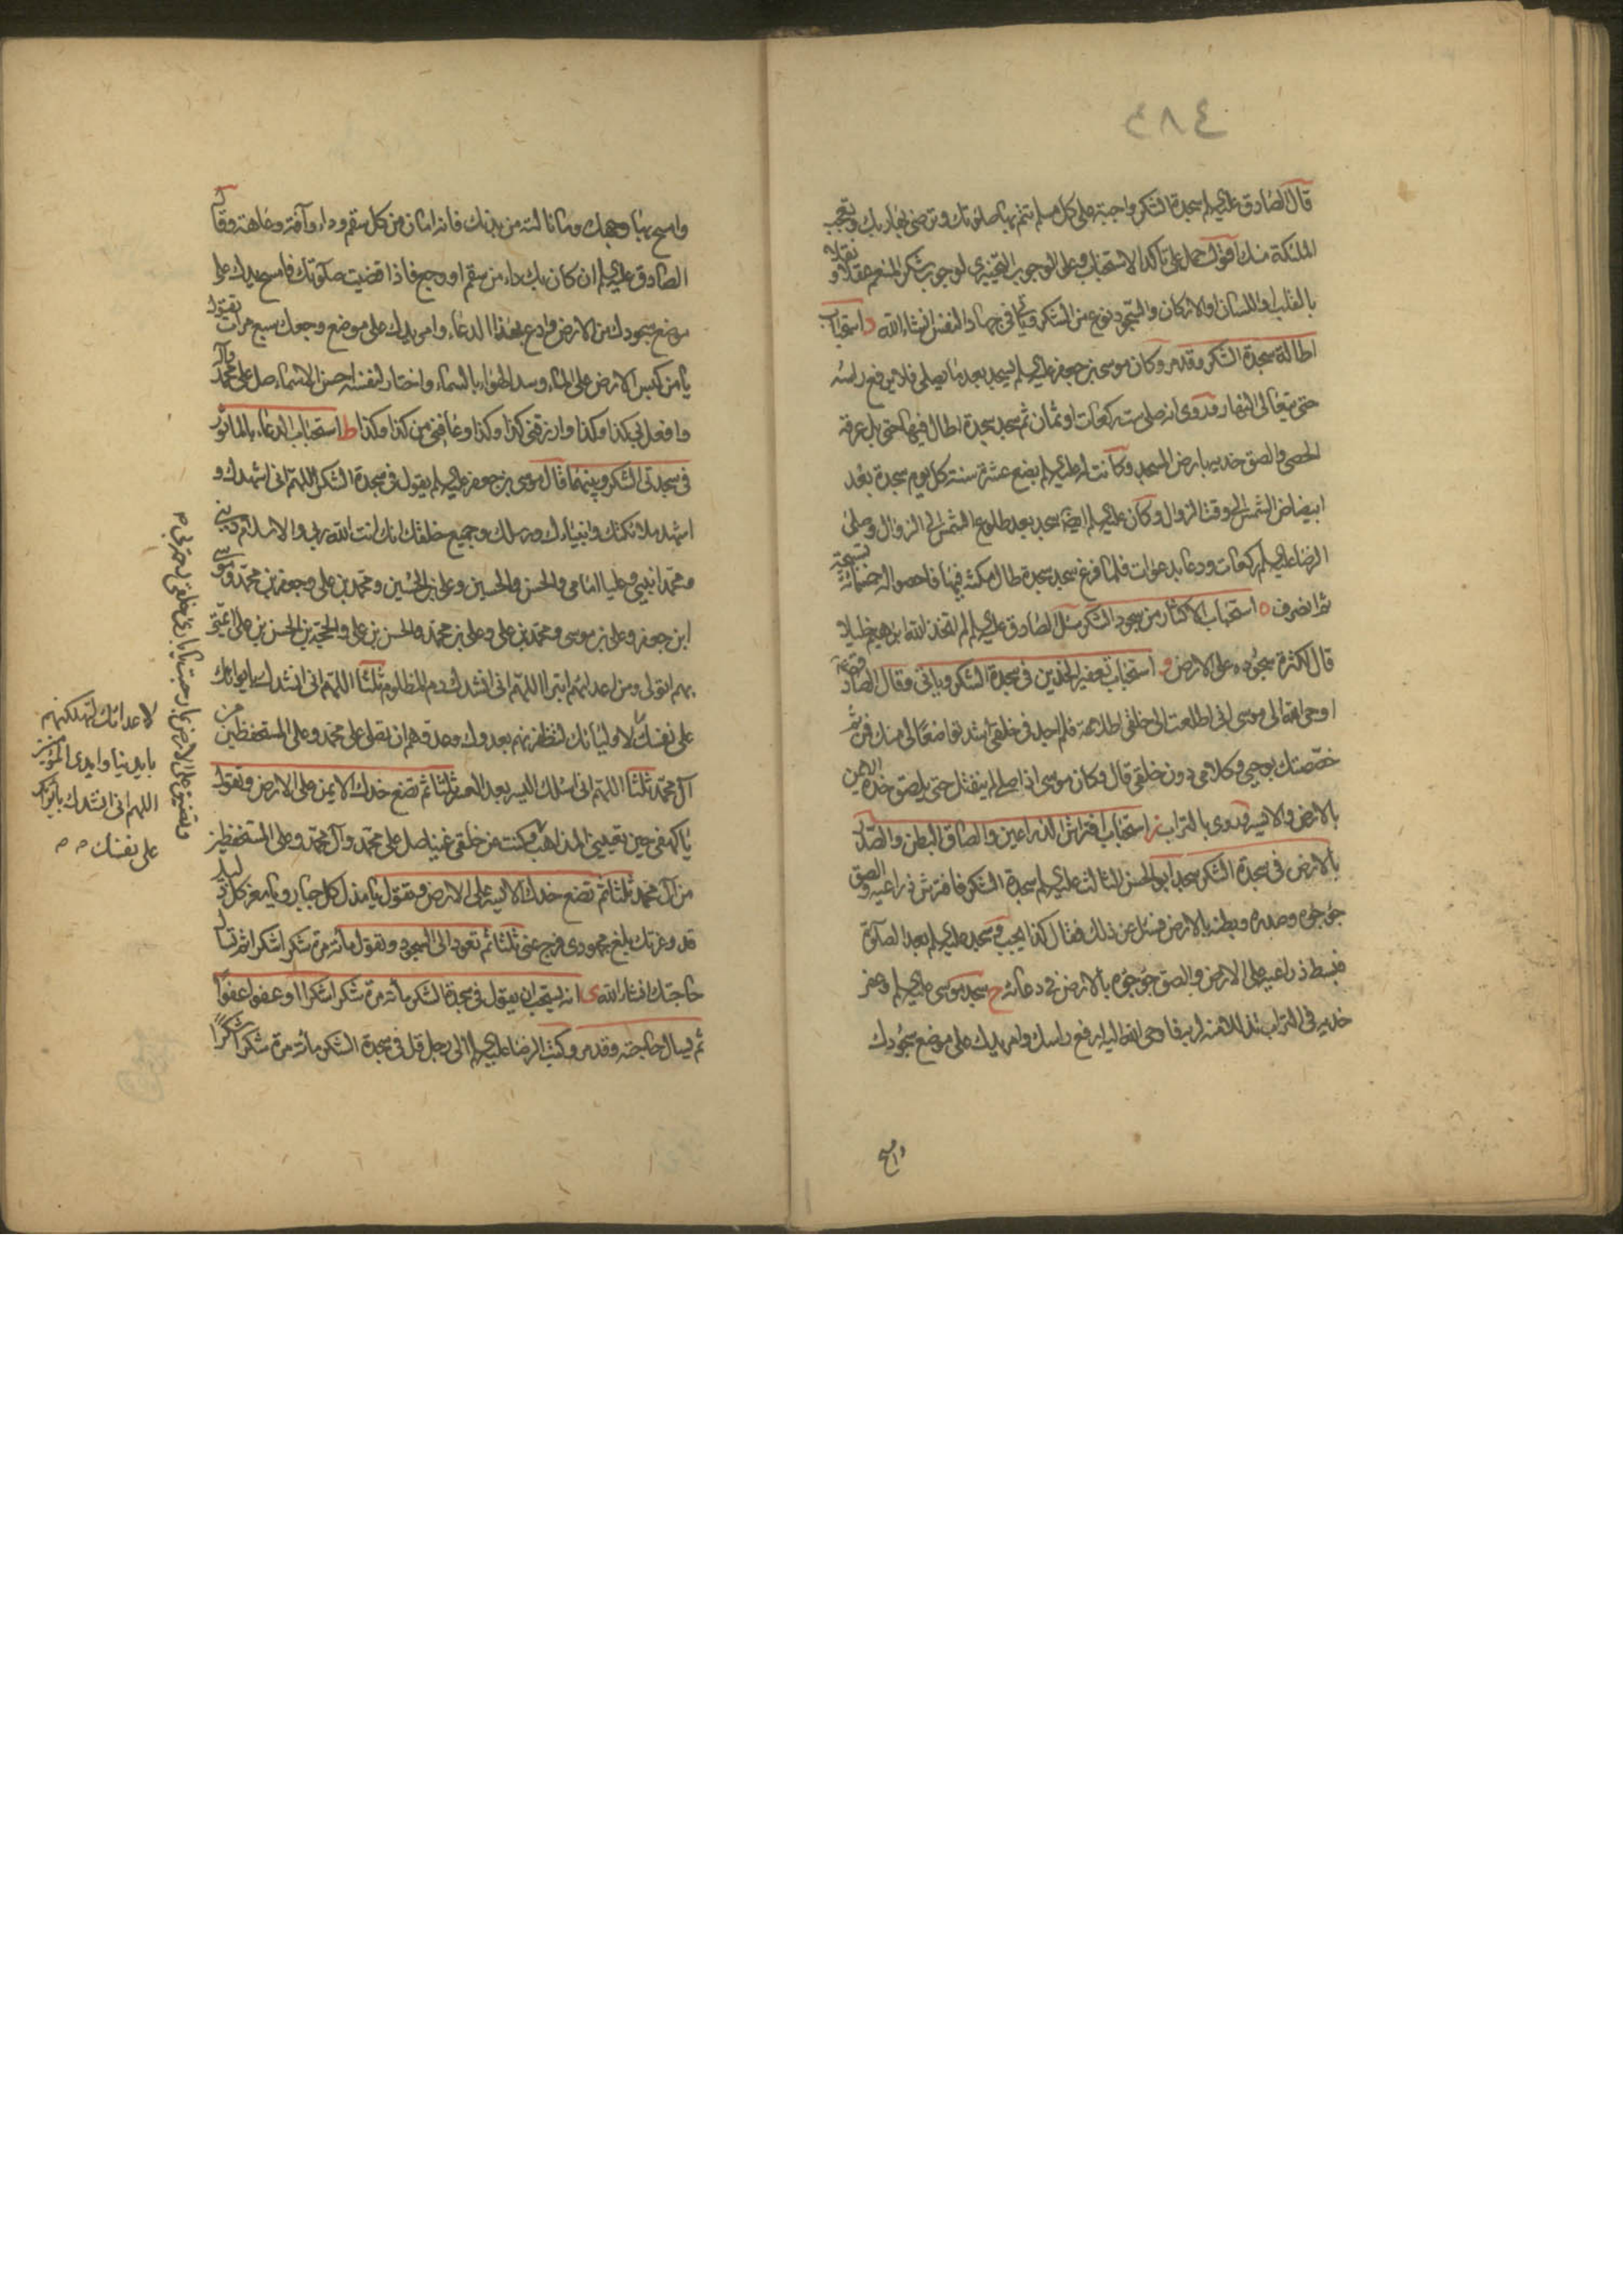 ٤٨٤
قال الصادق عليه السلم سجدة الشكر واجبة على كل مسلم تتم بها صلوتك وترضى بها ربك وتعجب
الملئكة منك اقول حمل على تأكد الاستحباب وعلى الوجوب التخييرى لوجوب شكر المنعم عقلا و نقلا
بالقلب او اللسان او الاركان والسجود نوع من الشكر وياتى فى جهاد النفس انشاء الله د استحباب
اطالة سجدة الشكر وقد مر وكان موسى بن جعفر عليه السلم يسجد بعد ما يصلى فلا يرفع راسه
حتى يتعالى النهار وروى انه صلى ست ركعات او ثمان ثم سجد سجدة اطال فيها حتى بل عرقه
الحصى والصق خديه بارض المسجد وكانت له عليه السلم بضع عشرة سنة كل يوم سجدة بعد
ابيضاض الشمس الى وقت الزوال وكان عليه السلم ايضا يسجد بعد طلوع الشمس الى الزوال وصلى
الرضا عليه السلم ركعات ودعا بدعوات فلما فرغ سجد سجدة طال مكثه فيها فاحصوا له خمسمائة تسبيحة
ثم انصرف ه استحباب الاكثار من سجود الشكر سئل الصادق عليه السلم لم اتخذ الله ابرهيم خليلا
قال لكثرة سجوده على الارض و استحباب تعفير الخدين فى سجدة الشكر وياتى وقال الصادق
اوحى الله الى موسى انى اطلعت الى خلقى اطلاعة فلم اجد فى خلقى اشد تواضعا لى منك فمن ثم
خصصتك بوحيى وكلامى دون خلقى قال وكان موسى اذا صلى لم ينفتل حتى يلصق خده الايمن
بالارض والايسر وروى بالتراب ز استحباب افتراش الذراعين والصاق البطن والصدر
بالارض فى سجدة الشكر سجد ابو الحسن الثالث عليه السلم سجدة الشكر فافترش ذراعيه والصق
جؤجؤه وصدره وبطنه بالارض فسئل عن ذلك فقال كذا يجب وسجد عليه السلم بعد الصلوة
فبسط ذراعيه على الارض والصق جؤجؤه بالارض فى دعائه ح سجد موسى عليه السلم وعفر
خديه فى التراب تذللا منه لربه فاوحى الله اليه ارفع راسك وامر يدك على موضع سجودك
وامسح
وامسح بها وجهك وما نالته من بدنك فانه امان من كل سقم وداء وآفة وعاهة وقال
الصادق عليه السلم ان كان بك داء من سقم او وجع فاذا قضيت صلوتك فامسح بيدك على
موضع سجودك من الارض وادع بهذا الدعاء وامر يدك على موضع وجعك سبع مرات تقول
يا من كبس الارض على الماء وسد الهواء بالسماء واختار لنفسه احسن الاسماء صل على محمد وآل
وافعل بى كذا وكذا وارزقنى كذا وكذا وعافنى من كذا وكذا ط استحباب الدعاء بالماثور
فى سجدتى الشكر وبينهما قال موسى بن جعفر عليه السلم يقول فى سجدة الشكر اللهم انى اشهدك و
اشهد ملائكتك وانبياءك ورسلك وجميع خلقك انك انت الله ربى والاسلام دينى
ومحمدا نبيى وعليا امامى والحسن والحسين وعلى بن الحسين ومحمد بن على وجعفر بن محمد وموسى
ابن جعفر وعلى بن موسى ومحمد بن على وعلى بن محمد والحسن بن على والحجة بن الحسن بن على ائمتى
بهم اتولى ومن اعدائهم اتبرا اللهم انى انشدك دم المظلوم ثلثا اللهم انى انشدك بايوائك
على نفسك لاوليائك لتظفرنهم بعدوك وعدوهم ان تصلى على محمد وعلى المستحفظين من
آل محمد ثلثا اللهم انى اسئلك اليسر بعد العسر ثلثا ثم تضع خدك الايمن على الارض وتقول
يا كهفى حين تعيينى المذاهب وتضيق على الارض بما رحبت يا بارئ خلقى رحمة بى م
وكنت عن خلقى غنيا صل على محمد وآل محمد وعلى المستحفظين
من آل محمد ثلثا ثم تضع خدك الايسر على الارض وتقول يا مذل كل جبار ويا معز كل ذليل
قد وعزتك بلغ مجهودى ففرج عنى ثلثا ثم تعود الى السجود وتقول مائة مرة شكرا شكرا ثم تسال
حاجتك انشاء الله ى انه يستحب ان يقول فى سجدة الشكر مائة مرة شكرا شكرا او عفوا عفوا
ثم يسال حاجته وقد مر وكتب الرضا عليه السلم الى رجل قل فى سجدة الشكر مائة مرة شكرا شكرا
لاعدائك لتهلكنهم
بايدينا وايدى المؤمنين
اللهم انى انشدك بايوائك
على نفسك